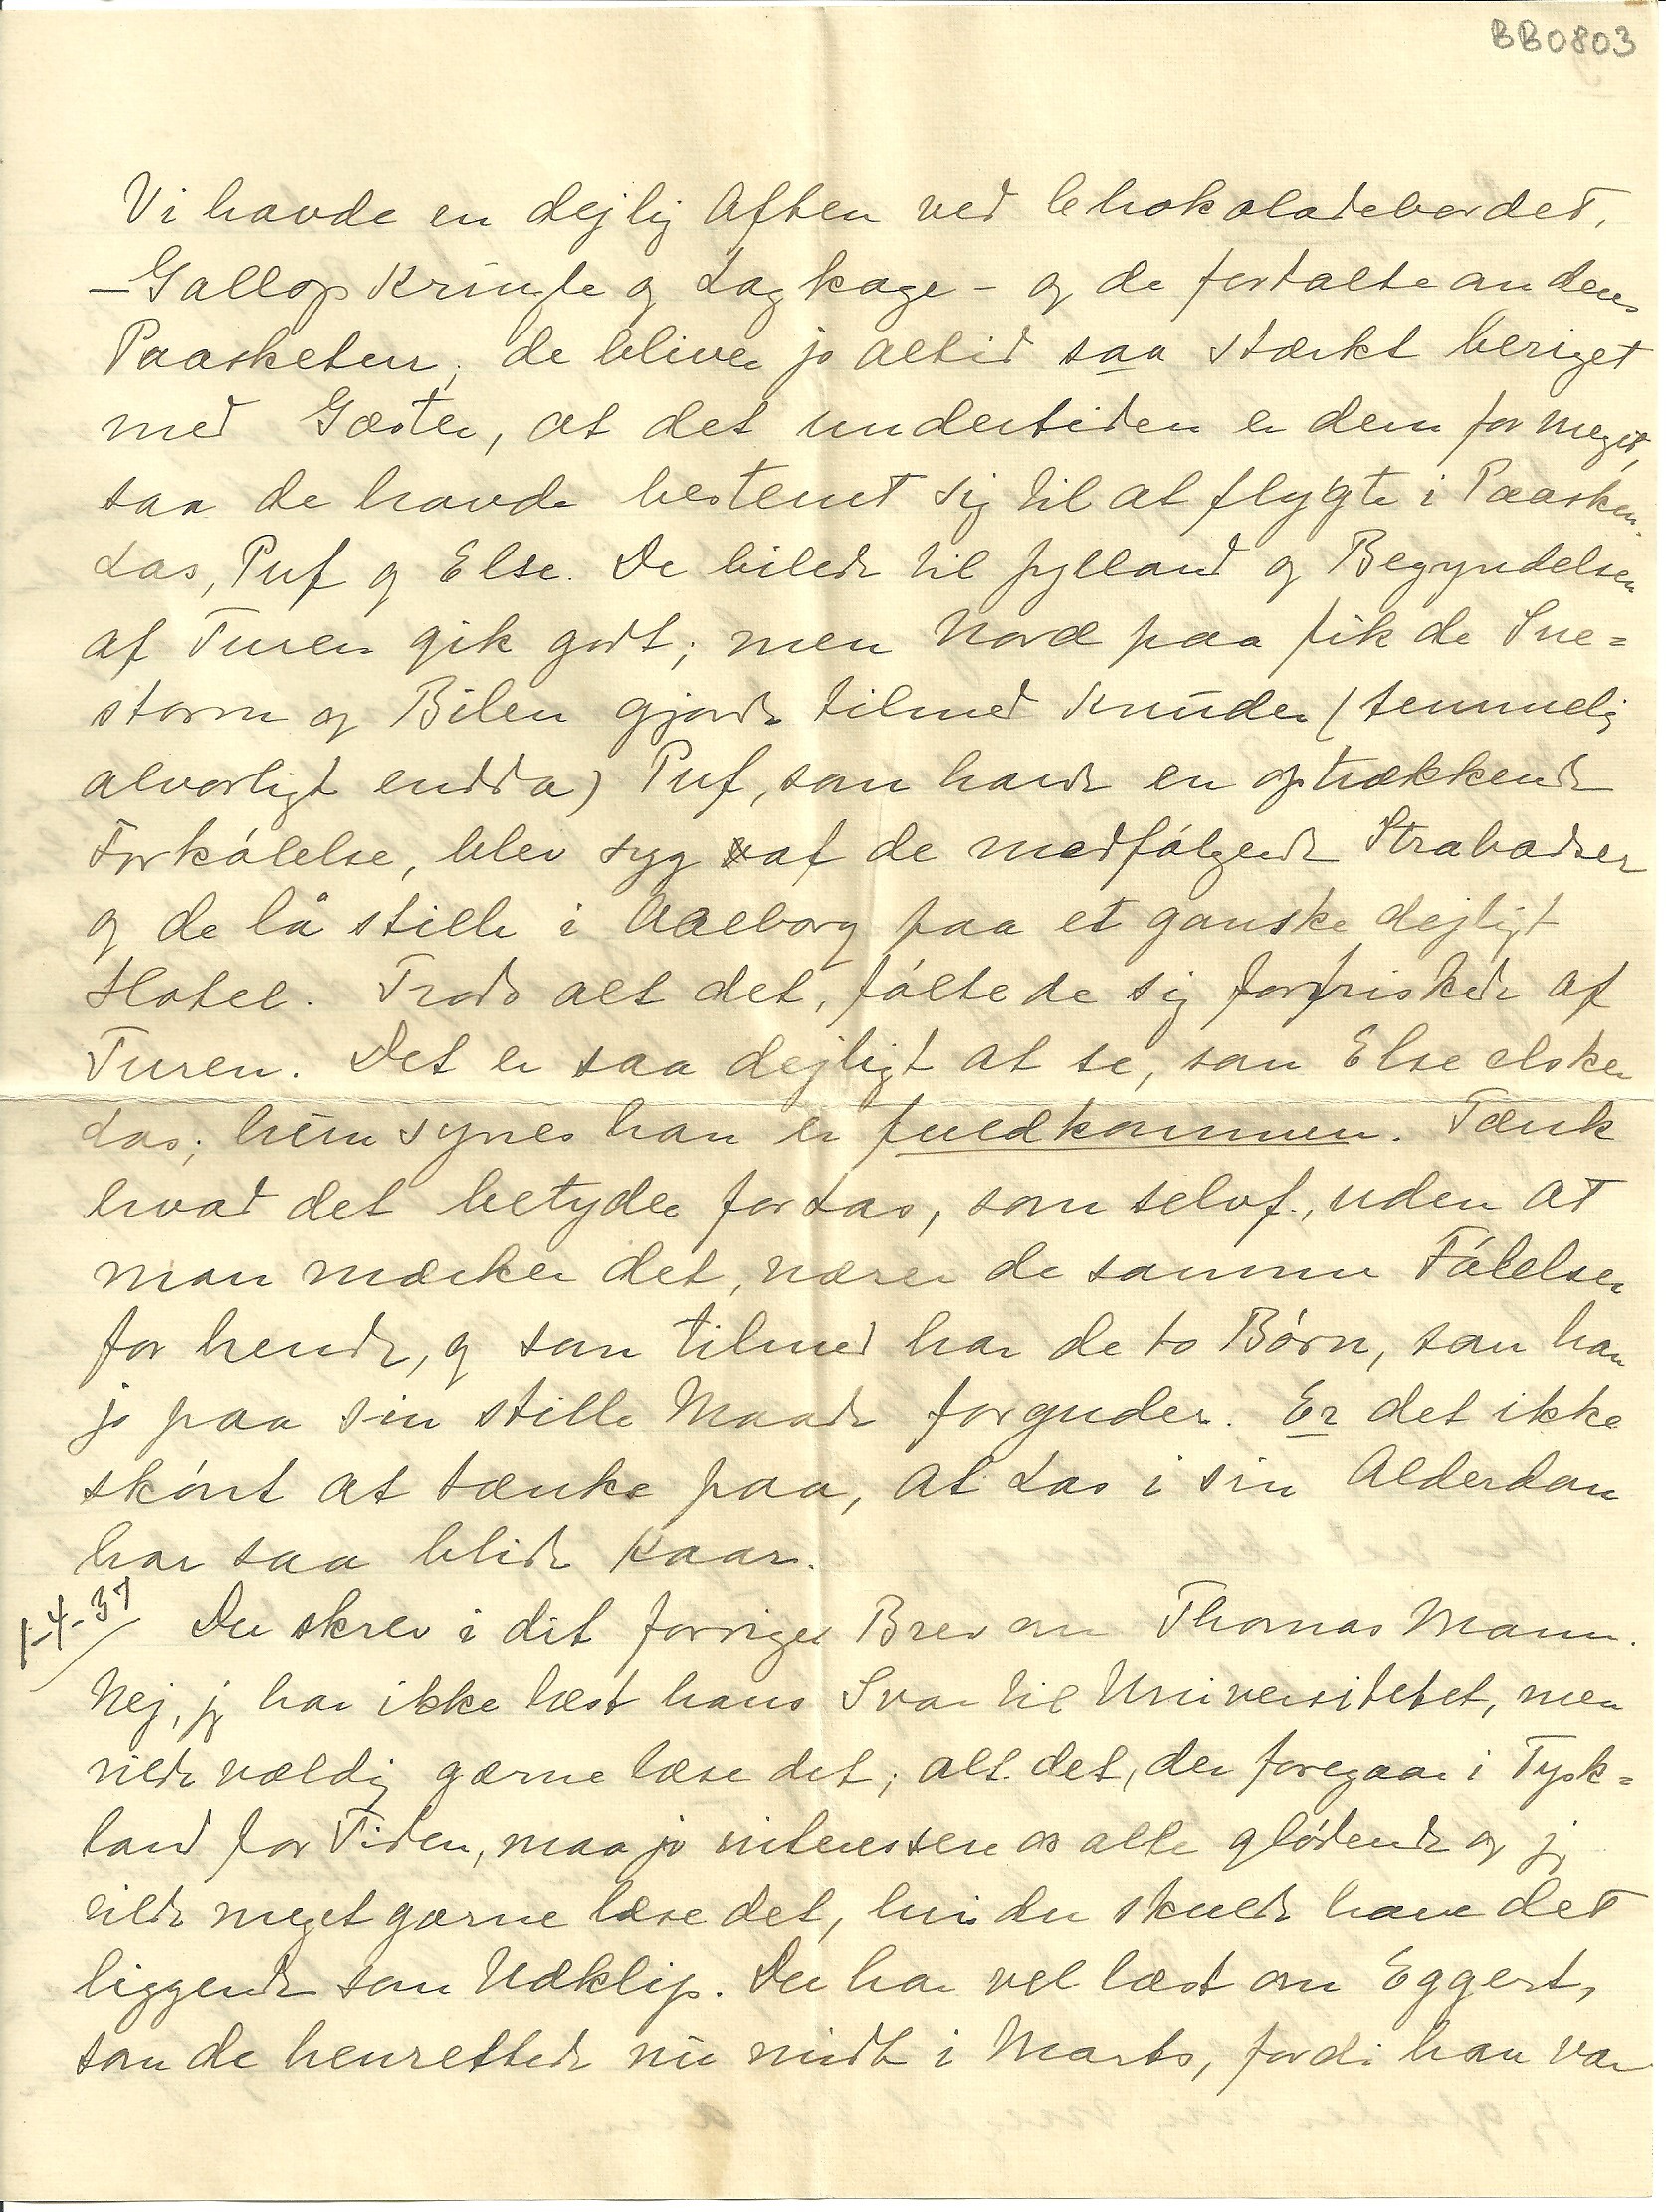 BB0803
Vi havde en dejlig Aften ved Chokoladebordet,
– Gallop Kringle og Lagkage – og de fortalte om deres
Paasketur; de bliver jo altid saa stærkt beriget
med Gæster, at det undertiden er dem for meget,
saa de havde bestemt sig til at flygte i Paasken.
Las, Puf og Else. De bilede til Jylland og Begyndelsen
af Turen gik godt; men Nord paa fik de Sne=
storm og Bilen gjorde tilmed Knuder (temmelig
alvorligt endda) Puf, som havde en optrækkende
Forkølelse, blev syg af de medfølgende Strabadser
og de lå stille i Aalborg paa et ganske dejligt
Hotel. Trods alt det, følte de sig forfriskede af
Turen. Det er saa dejligt at se, som Else elsker
Las; hun synes han er fuldkommen. Tænk
hvad det betyder for Las, som selvf., uden at
man mærker det, nærer de samme Følelser
for hende, og som tilmed har de to Børn, som han
jo paa sin stille Maade forguder. Er det ikke
skønt at tænke paa, at Las i sin Alderdom
har saa blide Kaar.
1-4-37
Du skrev i dit forrige Brev om Thomas Mann.
Nej, jeg har ikke læst hans Svar til Universitetet, men
vilde vældig gærne læse det; alt det, der foregaar i Tysk=
land for Tiden, maa jo interessere os alle glødende og jeg
vilde meget gærne læse det, hvis du skulde have det
liggende som Udklip. Du har vel læst om Eggert,
som de henrettede nu midt i Marts, fordi han var